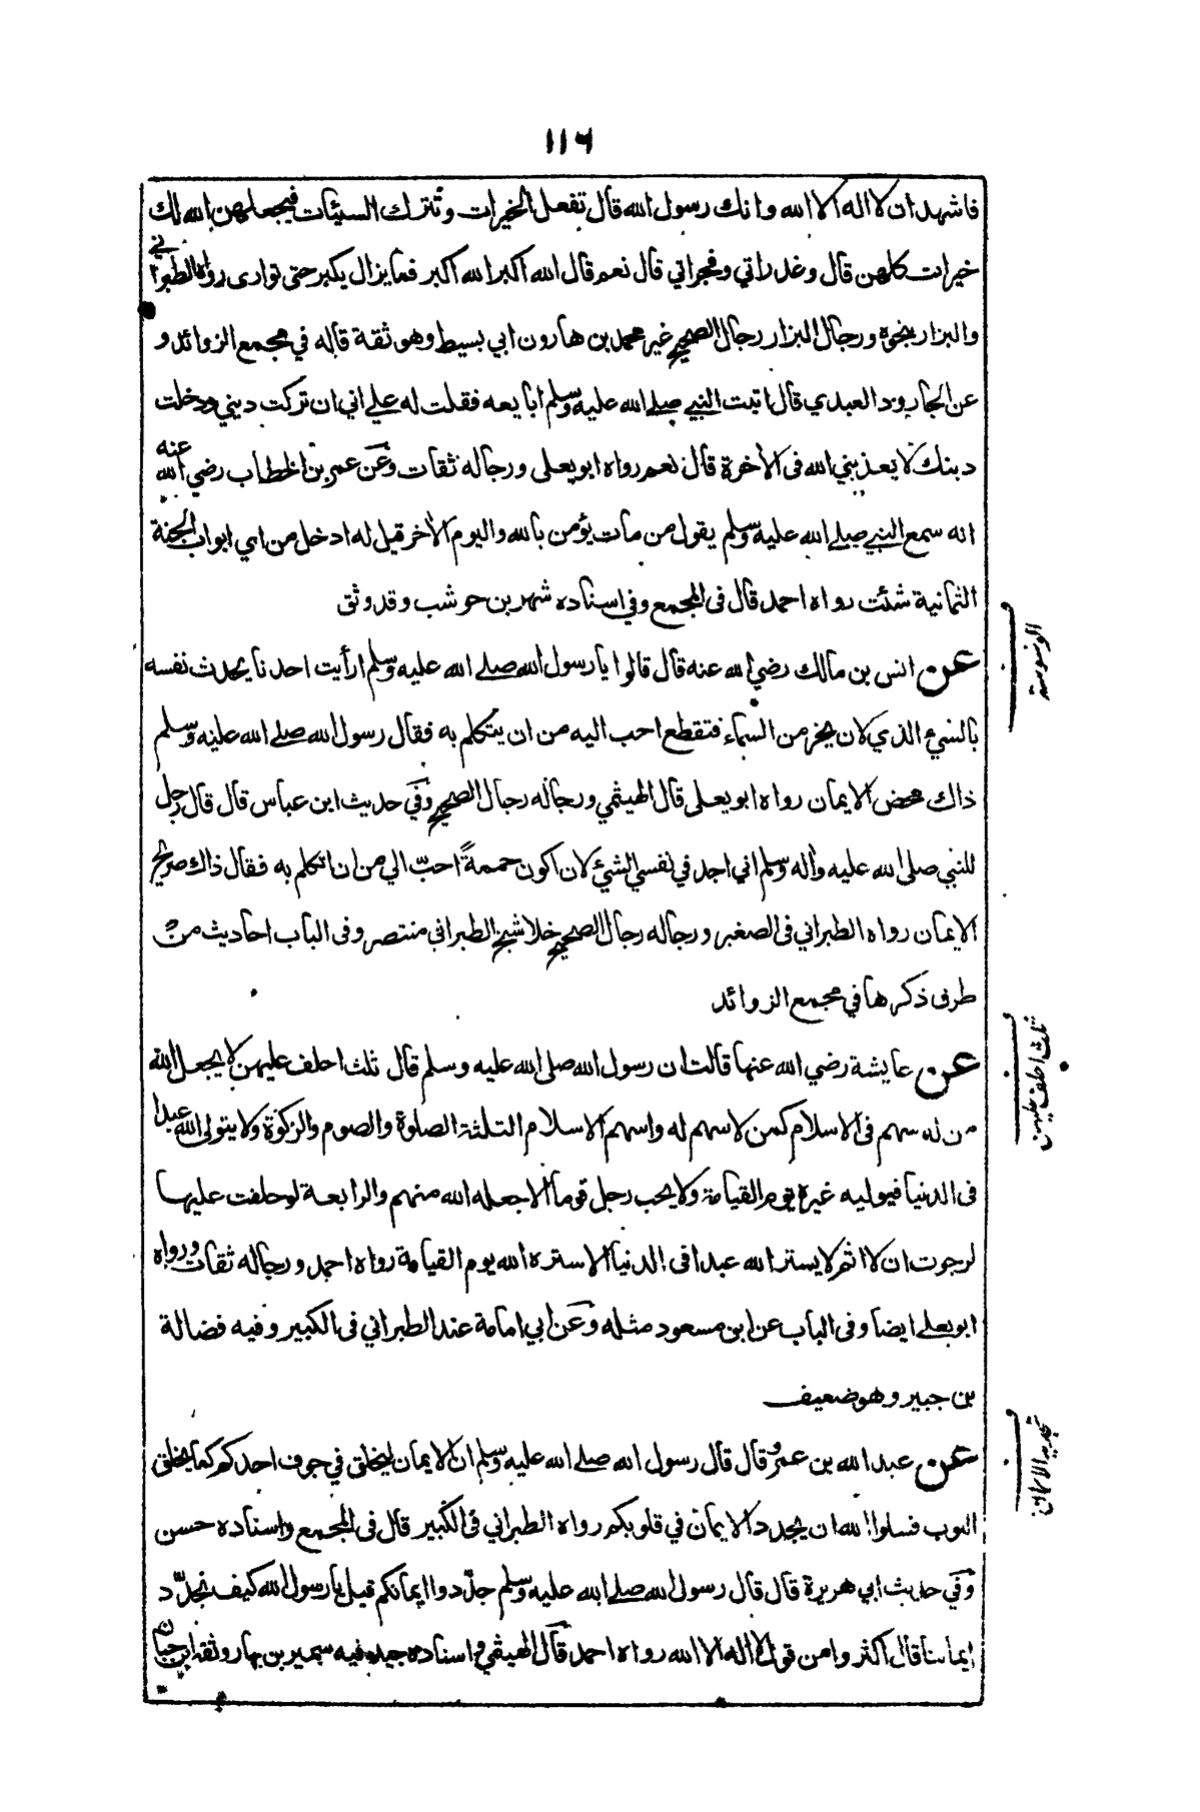 ١١٦
فاشهد ان لا اله الا الله وانك رسول الله قال تفعل الخيرات وتترك السيئات فيجعلهن الله لك
خيرات كلهن قال وغدراتي وفجراتي قال نعم قال الله اكبر الله اكبر فما يزال يكبر حتى توارى رواه الطبراني
والبزار بنحوه ورجال البزار رجال الصحيح غير محمد بن هارون ابي بسيط وهو ثقة قاله في مجمع الزوائد و
عن الجارود العبدي قال اتيت النبي صلى الله عليه وسلم ابايعه فقلت له علي اني ان تركت ديني ودخلت
دينك لا يعذبني الله في الأخرة قال نعم رواه ابو يعلى ورجاله ثقات وعن عمر بن الخطاب رضي الله عنه
انه سمع النبي صلى الله عليه وسلم يقول من مات يؤمن بالله واليوم الأخر قيل له ادخل من اي ابواب الجنة
الثمانية شئت رواه احمد قال في المجمع وفي اسناده شهر بن حوشب وقد وثق
الوسوسة
عن انس بن مالك رضي الله عنه قال قالوا يا رسول الله صلى الله عليه وسلم ارأيت احدنا يحدث نفسه
بالشيء الذي لان يخر من السماء فتقطع احب اليه من ان يتكلم به فقال رسول الله صلى الله عليه وسلم
ذاك محض الايمان رواه ابو يعلى قال الهيثمي ورجاله رجال الصحيح وفي حديث ابن عباس قال قال رجل
للنبي صلى الله عليه وأله وسلم اني اجد في نفسي الشيء لان اكون حممةً احبّ الي من ان اتكلم به فقال ذاك صريح
الايمان رواه الطبراني في الصغير ورجاله رجال الصحيح خلا شيخ الطبراني منتصر وفي الباب احاديث من
طرق ذكرها في مجمع الزوائد
ثلث احلف عليهن
عن عايشة رضي الله عنها قالت ان رسول الله صلى الله عليه وسلم قال ثلث احلف عليهن لا يجعل الله
من له سهم في الاسلام كمن لا سهم له واسهم الاسلام الثلثة الصلوة والصوم والزكوة ولا يتولى الله عبدا
في الدنيا فيوليه غيره يوم القيامة ولا يحب رجل قوما الا جعله الله منهم والرابعة لو حلفت عليها
لرجوت ان لا اثم لا يستر الله عبدا في الدنيا الا ستره الله يوم القيامة رواه احمد ورجاله ثقات ورواه
ابو يعلى ايضا وفي الباب عن ابن مسعود مثله وعن ابي امامة عند الطبراني في الكبير وفيه فضالة
بن جبير وهو ضعيف
تجديد الايمان
عن عبد الله بن عمرو قال قال رسول الله صلى الله عليه وسلم ان الايمان ليخلق في جوف احدكم كما يخلق
الثوب فسلوا الله ان يجدد الايمان في قلوبكم رواه الطبراني في الكبير قال في المجمع واسناده حسن
وفي حديث ابي هريرة قال قال رسول الله صلى الله عليه وسلم جدّدوا ايمانكم قيل يا رسول الله كيف نجدّد
ايماننا قال اكثروا من قول لا اله الا الله رواه احمد قال الهيثمي واسناده جيد فيه سمير بن نهار وثقه ابن حبان